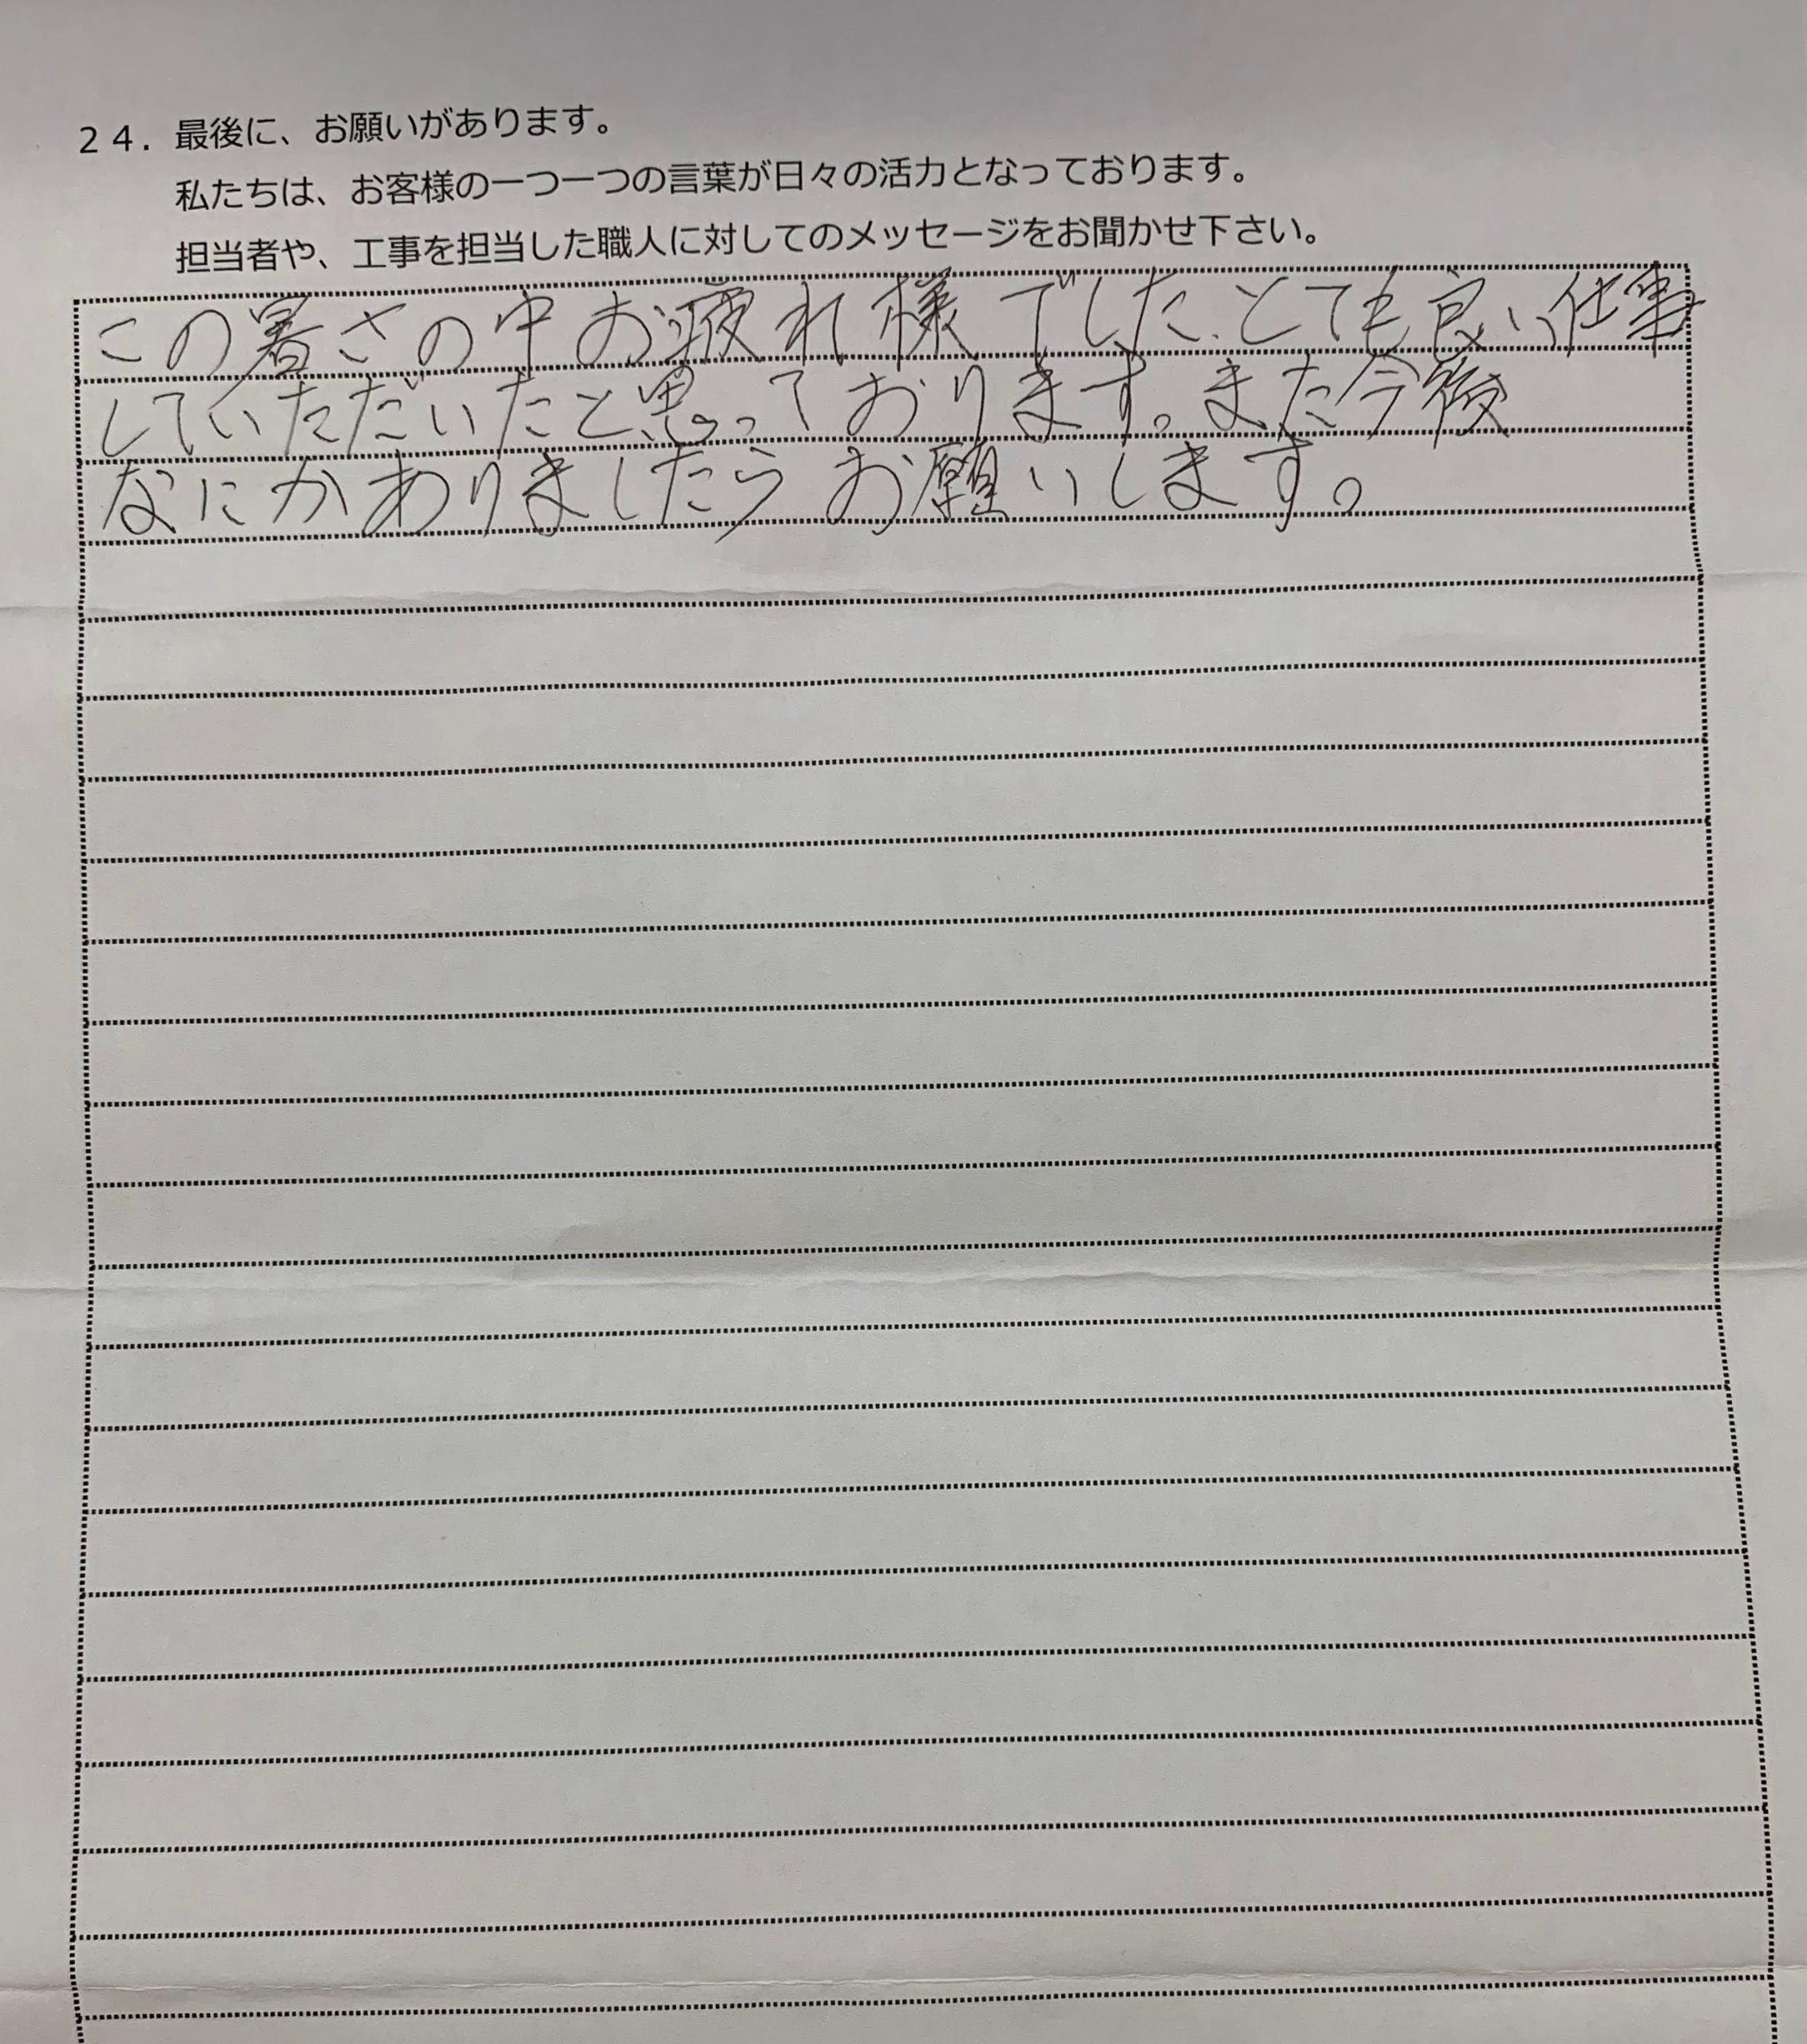 ２４．最後に、お願いがあります。
私たちは、お客様の一つ一つの言葉が日々の活力となっております。
担当者や、工事を担当した職人に対してのメッセージをお聞かせ下さい。
この暑さの中お疲れ様でした、とても良い仕事
していただいたと思っております。また今後
なにかありましたらお願いします。